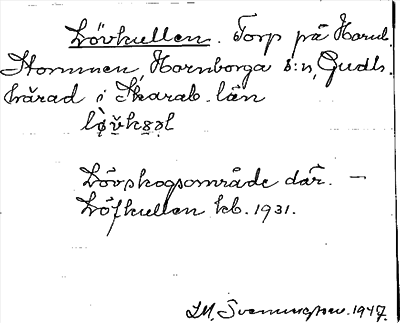 Lövkullen. Torp på Hornb.
Stommen, Hornborga s:n, Gudh.
härad i Skarab. län
Lövskogsområde där. —
Löfkullen kb. 1931.
I.M. Svenungsson. 1947.